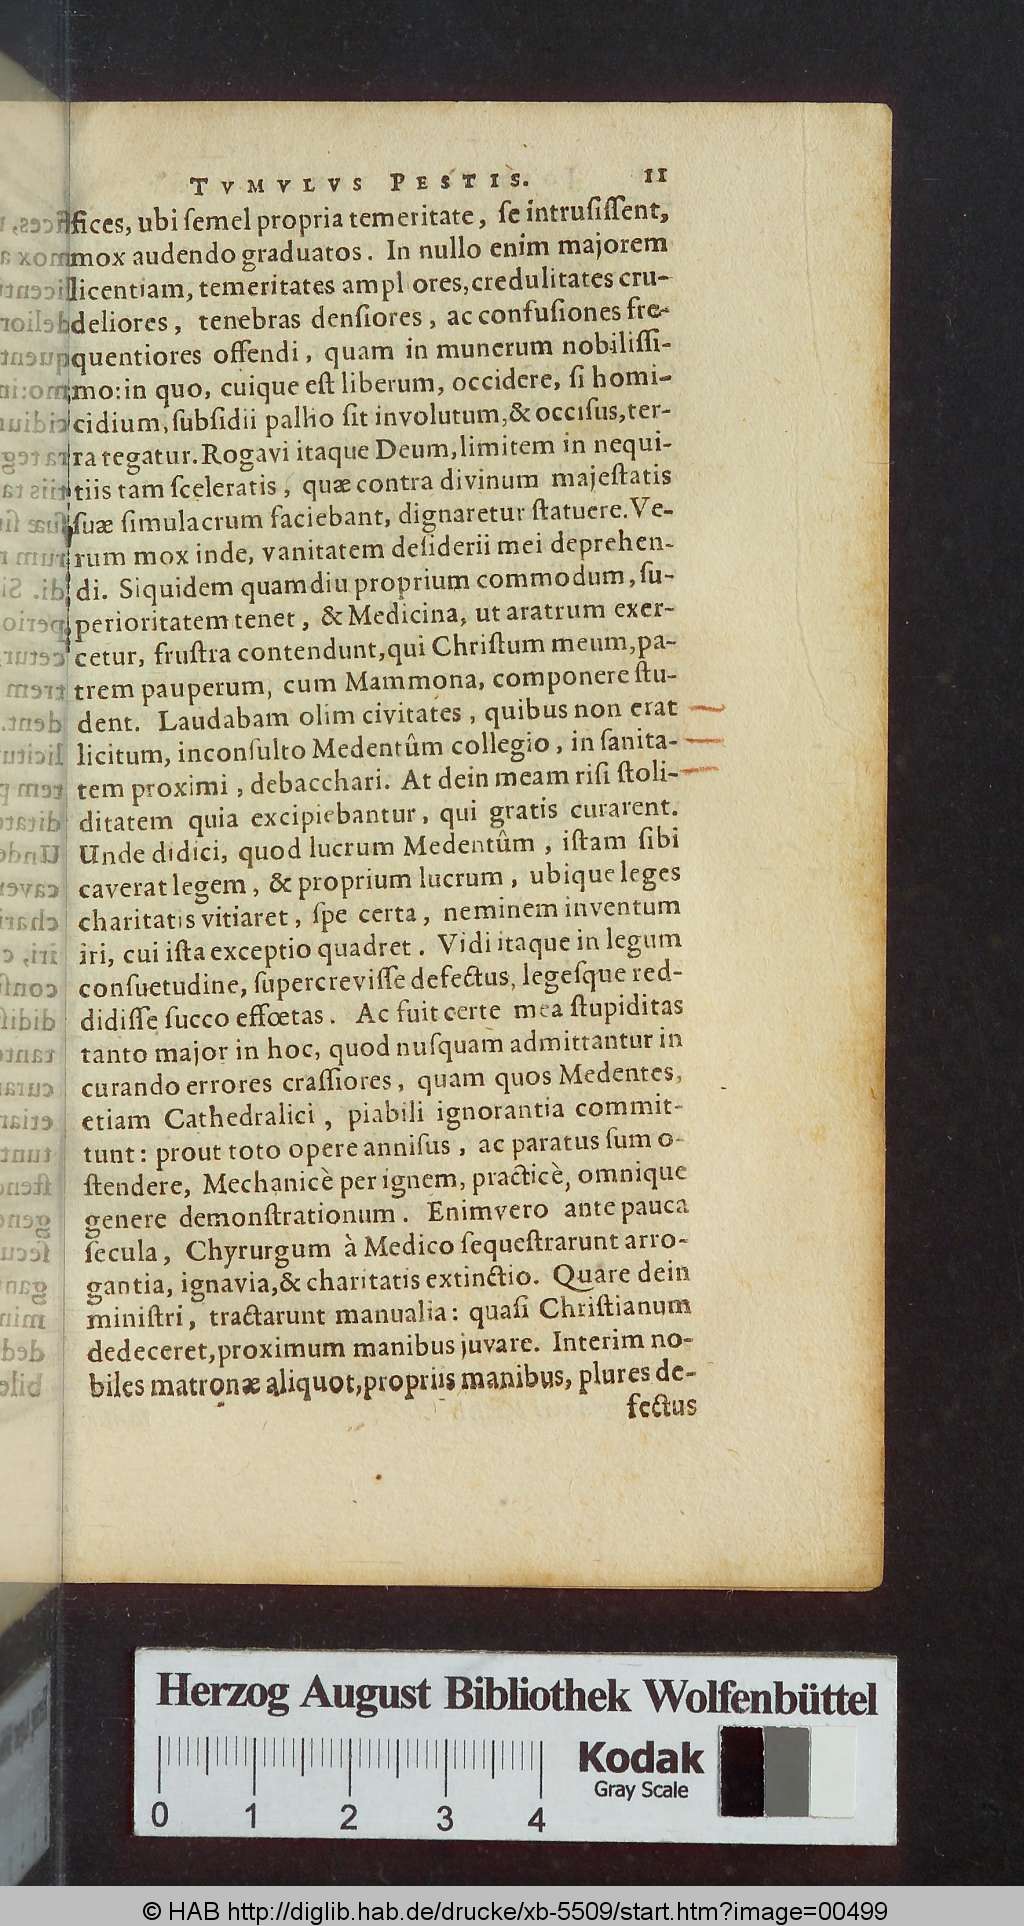 TVMVLVS PESTIS. 11
fices, ubi ſemel propria temeritate, ſe intruſiſſent,
mox audendo graduatos. In nullo enim majorem
licentiam, temeritates ampl ores, credulitates cru-
deliores, tenebras denſiores, ac confuſiones fre-
quentiores offendi, quam in munerum nobiliſſi-
mo: in quo, cuique eſt liberum, occidere, ſi homi-
cidium, ſubſidii palho ſit involutum, & occiſus, ter-
ra tegatur. Rogavi itaque Deum, limitem in nequi-
tiis tam ſceleratis, quæ contra divinum majeſtatis
ſuæ ſimulacrum faciebant, dignaretur ſtatuere. Ve-
rum mox inde, vanitatem deſiderii mei deprehen-
di. Siquidem quamdiu proprium commodum, ſu-
perioritatem tenet, & Medicina, ut aratrum exer-
cetur, fruſtra contendunt, qui Chriſtum meum, pa-
trem pauperum, cum Mammona, componere ſtu-
dent. Laudabam olim civitates, quibus non erat
licitum, inconſulto Medentûm collegio, in ſanita-
tem proximi, debacchari. At dein meam riſi ſtoli-
ditatem quia excipiebantur, qui gratis curarent.
Unde didici, quod lucrum Medentûm, iſtam ſibi
caverat legem, & proprium lucrum, ubique leges
charitatis vitiaret, ſpe certa, neminem inventum
iri, cui iſta exceptio quadret. Vidi itaque in legum
conſuetudine, ſupercreviſſe defectus, legeſque red-
didiſſe ſucco effœtas. Ac fuit certe mea ſtupiditas
tanto major in hoc, quod nuſquam admittantur in
curando errores craſſiores, quam quos Medentes,
etiam Cathedralici, piabili ignorantia commit-
tunt: prout toto opere anniſus, ac paratus ſum o-
ſtendere, Mechanicè per ignem, practicè, omnique
genere demonſtrationum. Enimvero ante pauca
ſecula, Chyrurgum à Medico ſequeſtrarunt arro-
gantia, ignavia, & charitatis extinctio. Quare dein
miniſtri, tractarunt manualia: quaſi Chriſtianum
dedeceret, proximum manibus juvare. Interim no-
biles matronæ aliquot, propriis manibus, plures de-
fectus
Herzog August Bibliothek Wolfenbüttel
Kodak
Gray Scale
0 1 2 3 4
© HAB http://diglib.hab.de/drucke/xb-5509/start.htm?image=00499